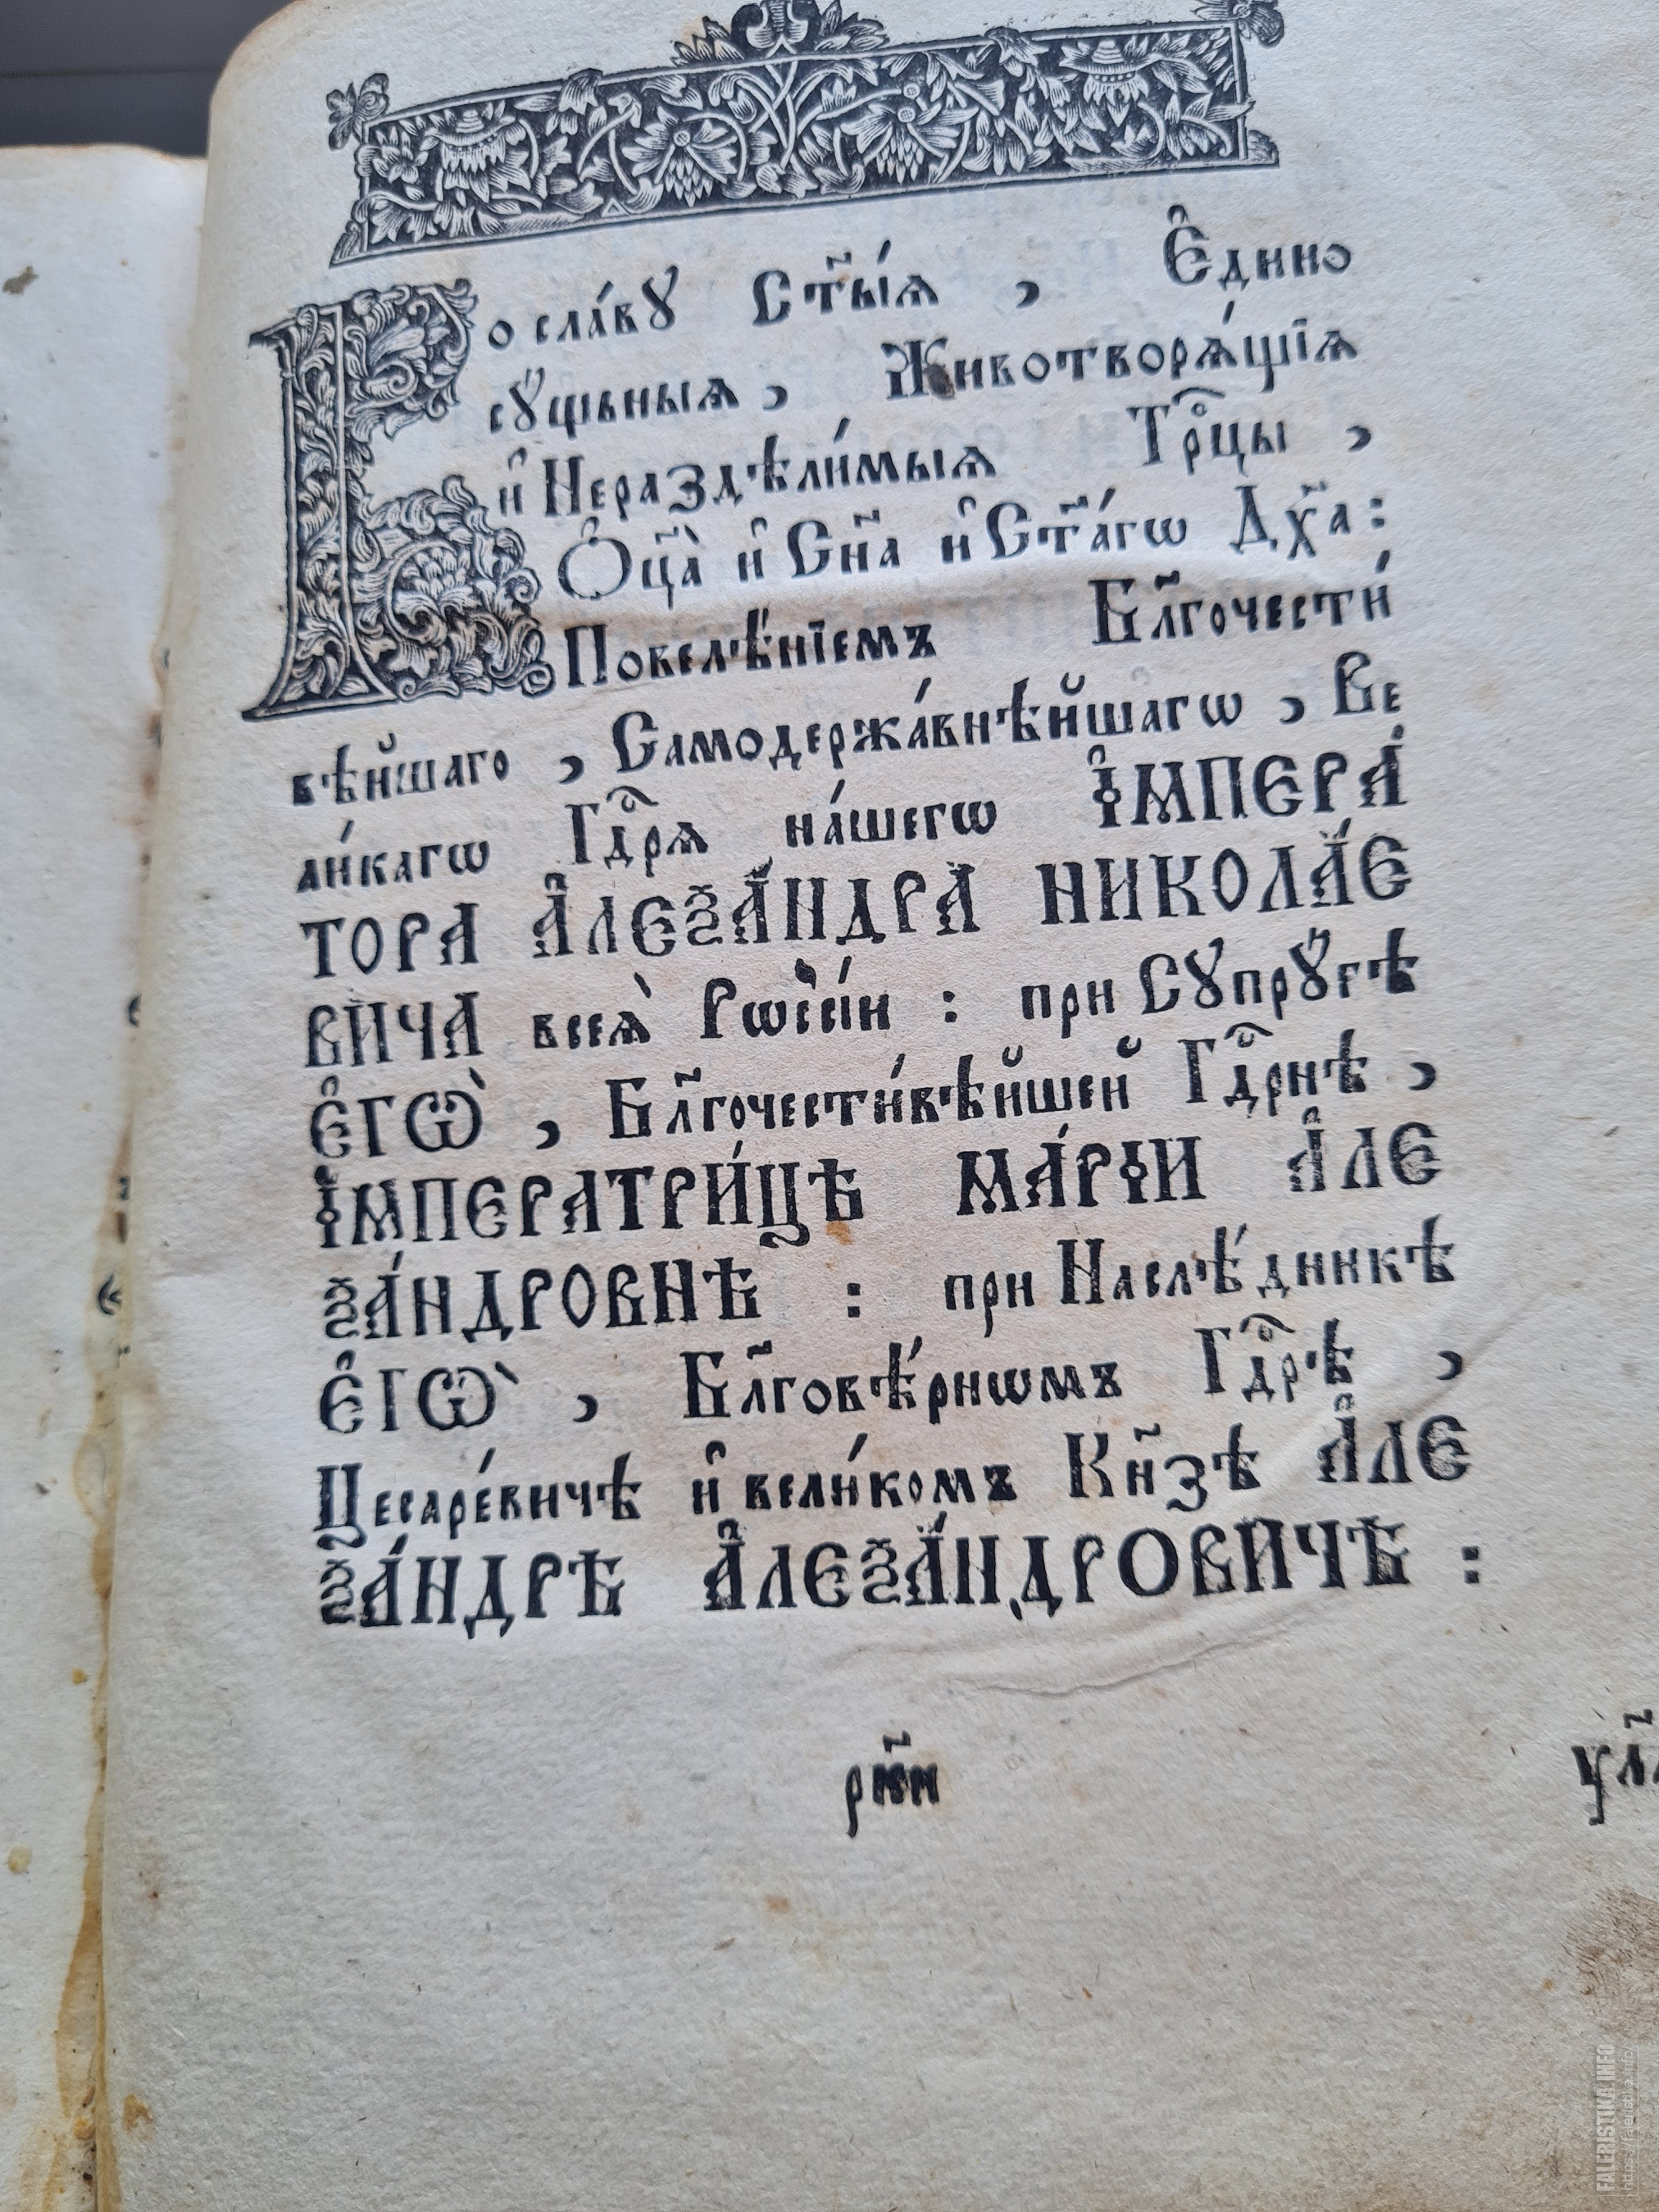 Во сла́вꙋ Ст҃ы́ѧ , Є҆дино
сꙋ́щныѧ , Животворѧ́щїѧ
и҆ Нераздѣли́мыѧ Трⷪ҇цы ,
Ѻ҆ц҃а̀ и҆ Сн҃а и҆ Ст҃а́гѡ Дх҃а :
Повелѣ́нїемъ Бл҃гочести́
вѣйшаго , Самодержа́внѣйшагѡ , Ве
ли́кагѡ Гдⷭ҇рѧ на́шегѡ І҆МПЕРА́
ТОРА А҆ЛЕѮА́НДРА НИКОЛА́Е
ВИЧА всеѧ̀ Рѡссі́и : при Сꙋпрꙋ́гѣ
Є҆ГѠ̀ , Бл҃гочести́вѣйшей Гдⷭ҇рнѣ ,
І҆МПЕРАТРИ́ЦѢ МАРІ́И А҆ЛЕ
ѮА́НДРОВНѢ : при Наслѣ́дникѣ
Є҆ГѠ̀ , Бл҃говѣ́рнѡмъ Гдⷭ҇рѣ ,
Цесаре́вичѣ и҆ вели́комъ Кн҃зѣ А҆ЛЕ
ѮА́НДРѢ А҆ЛЕѮА́НДРОВИЧѢ :
FALERISTIKA.INFO
https://faleristika.info